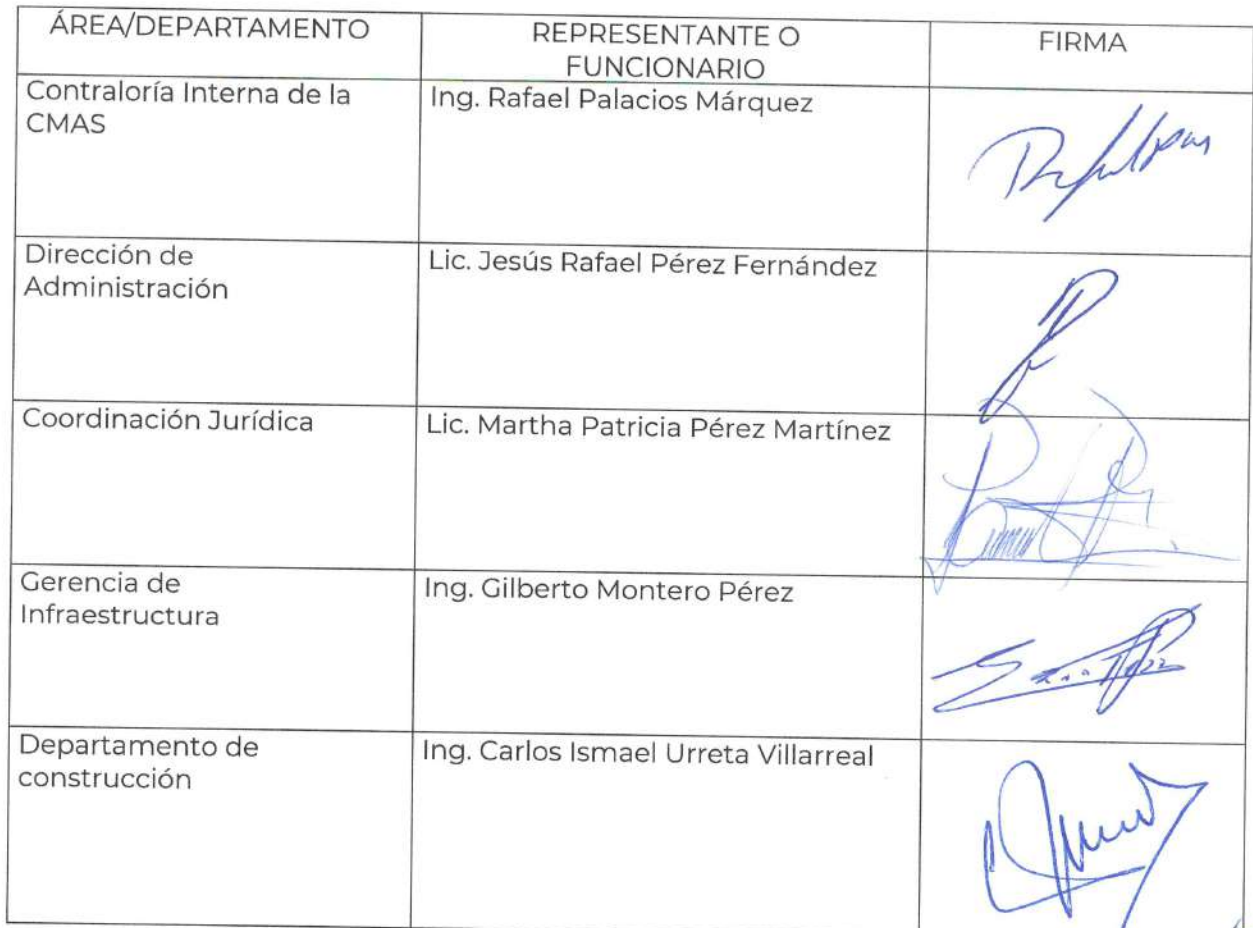 ÁREA/DEPARTAMENTO
REPRESENTANTE O
FUNCIONARIO
FIRMA
Contraloría Interna de la
CMAS
Ing. Rafael Palacios Márquez
Dirección de
Administración
Lic. Jesús Rafael Pérez Fernández
Coordinación Jurídica
Lic. Martha Patricia Pérez Martínez
Gerencia de
Infraestructura
Ing. Gilberto Montero Pérez
Departamento de
construcción
Ing. Carlos Ismael Urreta Villarreal